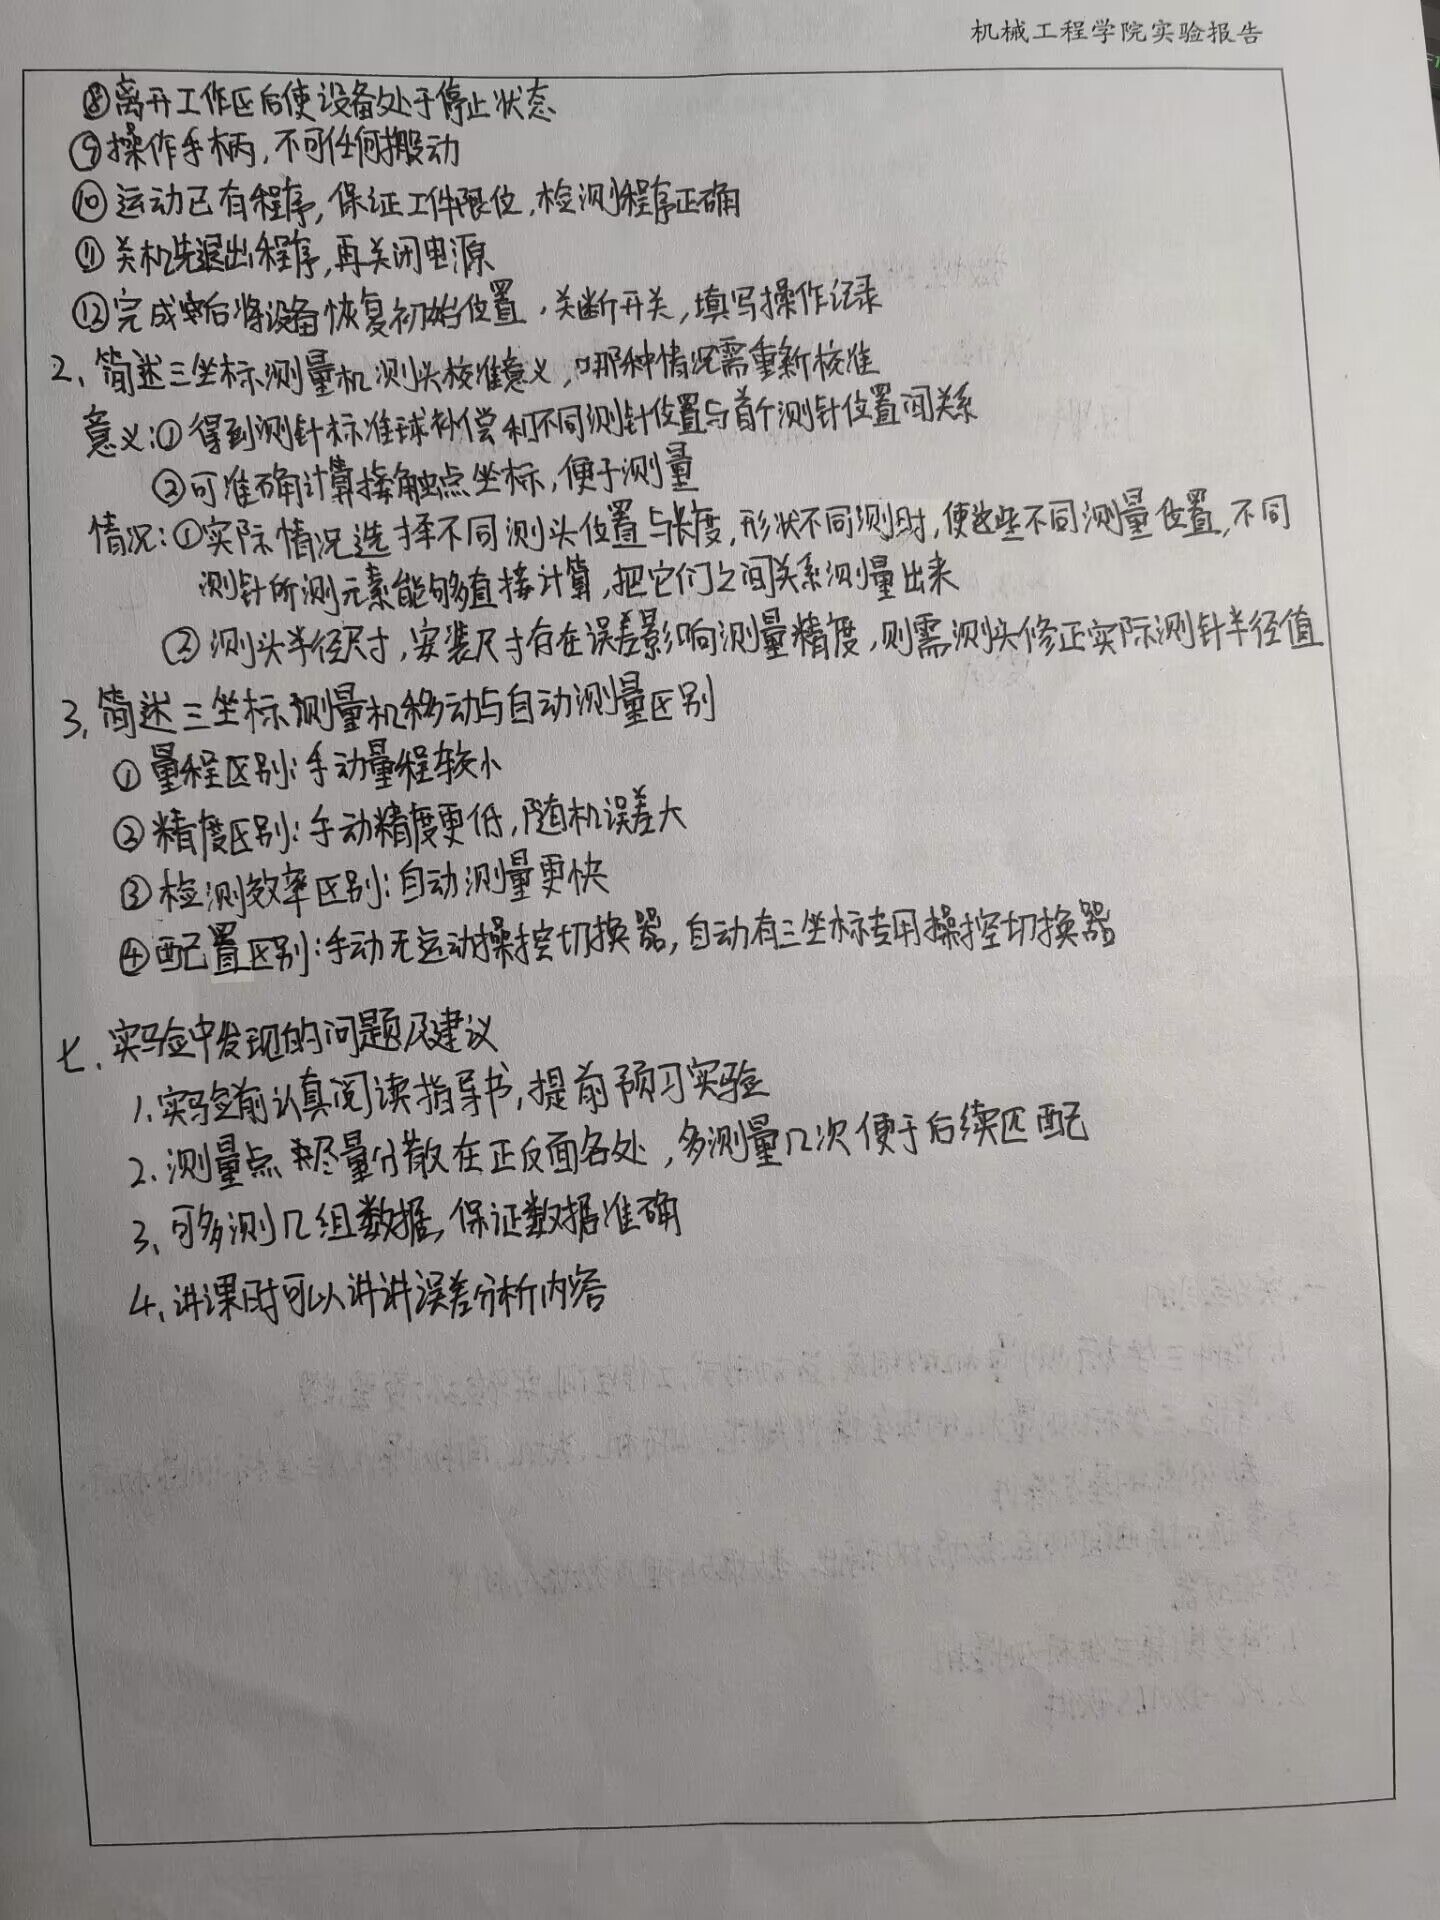 机械工程学院实验报告
⑧离开工作区后使设备处于停止状态
⑨操作手柄,不可任何搬动
⑩运动已有程序,保证工件限位,检测程序正确
⑪关机先退出程序,再关闭电源
⑫完成后将设备恢复初始位置,关断开关,填写操作记录
2、简述三坐标测量机测头校准意义,哪种情况需重新校准
意义:①得到测针标准球补偿和不同测针位置与首个测针位置间关系
②可准确计算接触点坐标,便于测量
情况:①实际情况选择不同测头位置与长度,形状不同测时,使这些不同测量位置,不同
测针所测元素能够直接计算,把它们之间关系测量出来
②测头半径尺寸,安装尺寸存在误差影响测量精度,则需测头修正实际测针半径值
3、简述三坐标测量机移动与自动测量区别
①量程区别:手动量程较小
②精度区别:手动精度更低,随机误差大
③检测效率区别:自动测量更快
④配置区别:手动无运动操控切换器,自动有三坐标专用操控切换器
七、实验中发现的问题及建议
1、实验前认真阅读指导书,提前预习实验
2、测量点尽量分散在正反面各处,多测量几次便于后续匹配
3、可多测几组数据,保证数据准确
4、讲课时可以讲讲误差分析内容